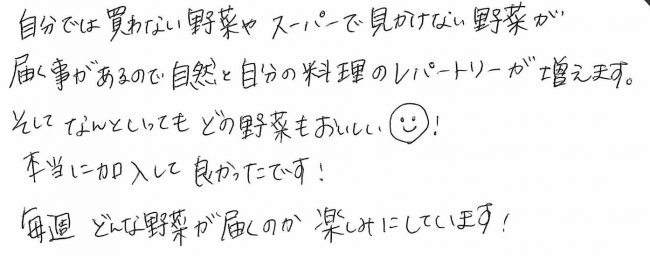 自分では買わない野菜やスーパーで見かけない野菜が
届く事があるので自然と自分の料理のレパートリーが増えます。
そしてなんといってもどの野菜もおいしい☺!
本当に加入して良かったです!
毎週どんな野菜が届くのか楽しみにしています!